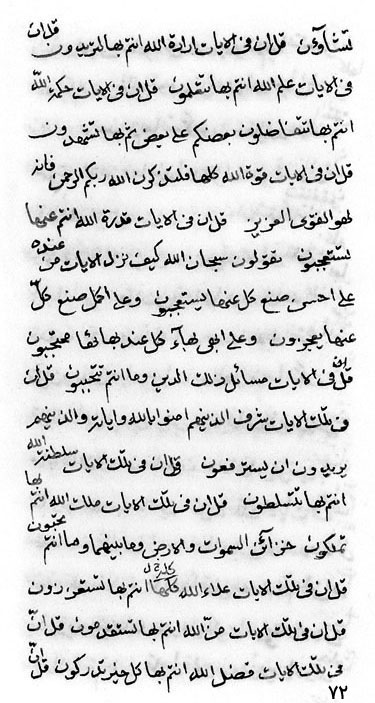 تشاؤن قل ان فی الایات ارادة الله انتم بها لتریدون قل ان
فی الایات علم الله انتم بها تتعلمون قل ان فی الایات حکمة الله
انتم بها تتفاضلون بعضکم علی بعض ثم بها تشهدون
قل ان فی الایات قوة الله کلها فلتذکرن الله ربکم الرحمن فانه
لهو القوی العزیز قل ان فی الایات قدرة الله انتم عنها
تستعجبون تقولون سبحان الله کیف نزل الایات من عنده
علی احسن صنع کل عنها یستعجبون وعلی اکمل صنع کل
عنها یعجزون وعلی ابهی بهآء کل عند بهائها محتجبون
قل ان فی الایات مسائل ذلک الدین وما انتم تحتجبون قل ان
فی تلک الایات شرف الذینهم امنوا بالله وایاته والذینهم
یریدون ان یسترفعون قل ان فی تلک الایات سلطنة الله
انتم بها تتسلطون قل ان فی تلک الایات ملک الله انتم بها
تملکون خزآئن السموات والارض وما بینهما وما انتم تحبون
قل ان فی تلک الایات علاء الله کلها انتم بها تستعززون
قل ان فی تلک الایات من الله انتم بها تستقدمون قل ان
فی تلک الایات فضل الله انتم بها کل خیر تدرکون قل ان
٧٢